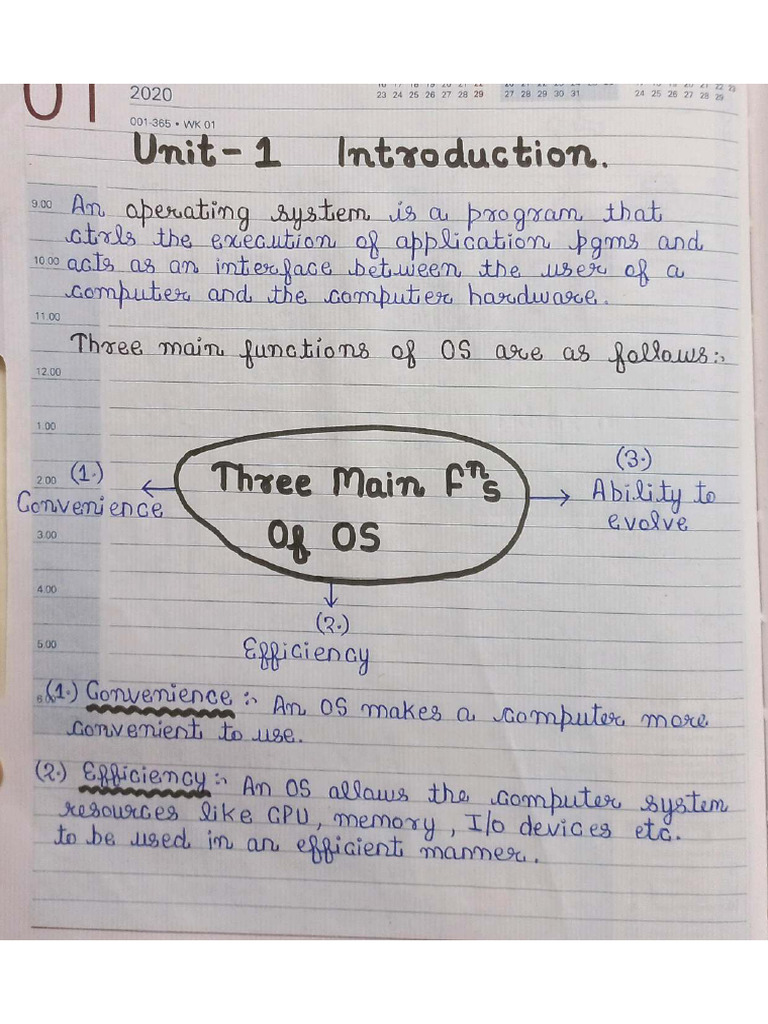 01
2020
16 17 18 19 20 21 22
23 24 25 26 27 28 29
27 28 29 30 31
24 25 26 27 28 29
001-365 • WK 01
Unit-1 Introduction.
9.00 An operating system is a program that
ctrls the execution of application pgms and
10.00 acts as an interface between the user of a
computer and the computer hardware.
11.00
Three main functions of OS are as follows:-
12.00
1.00
2.00
(1.)
Convenience
Three Main Fⁿs
Of OS
(3.)
Ability to
evolve
3.00
4.00
(2.)
Efficiency
5.00
(1.) Convenience :- An OS makes a computer more
convenient to use.
(2.) Efficiency :- An OS allows the computer system
resources like CPU, memory, I/o devices etc.
to be used in an efficient manner.